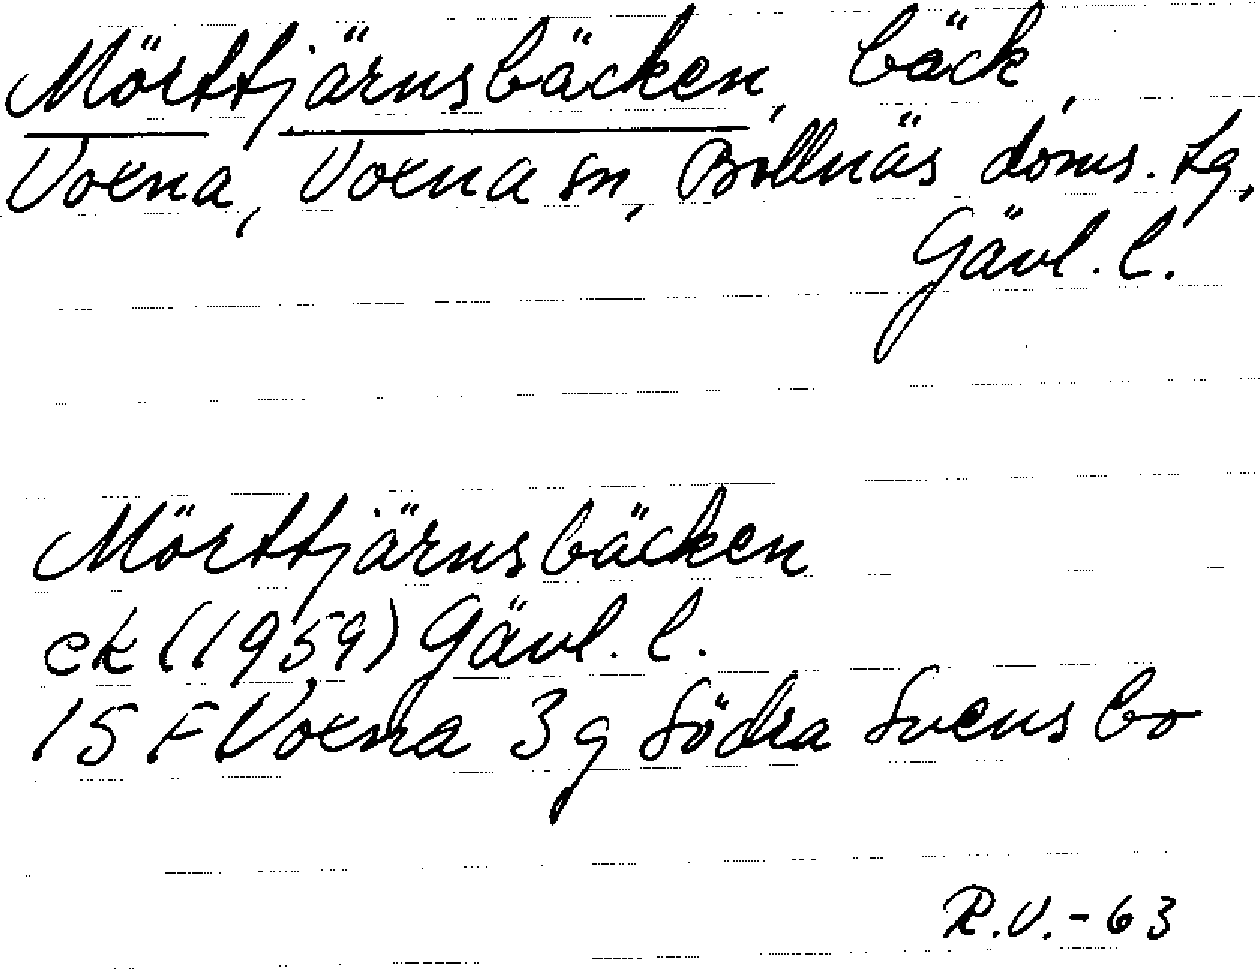 Mörttjärnsbäcken, bäck,
Voxna, Voxna sn, Bollnäs doms. tg,
Gävl. l.
Mörttjärnsbäcken
ek (1959) Gävl. l.
15 F Voxna 3 g Södra Svensbo
R.V. - 63